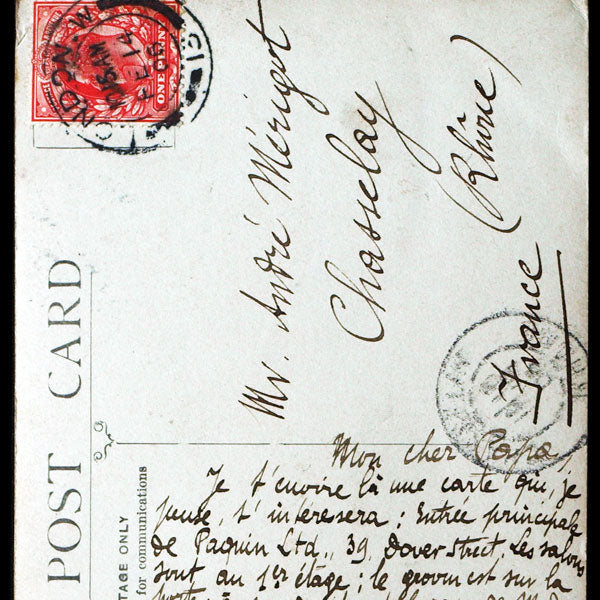 POST CARD
ONE PENNY
LONDON W
FE 14
06
Mr. André Mérigot
Chasselay
(Rhône)
France
TAGE ONLY
for communications
Mon cher Papa,
Je t'envoire là une carte qui, je
pense, t'interesera : Entrée principale
de Paquin Ltd., 39, Dover Street. Les salons
sont au 1er étage ; le groom est sur la